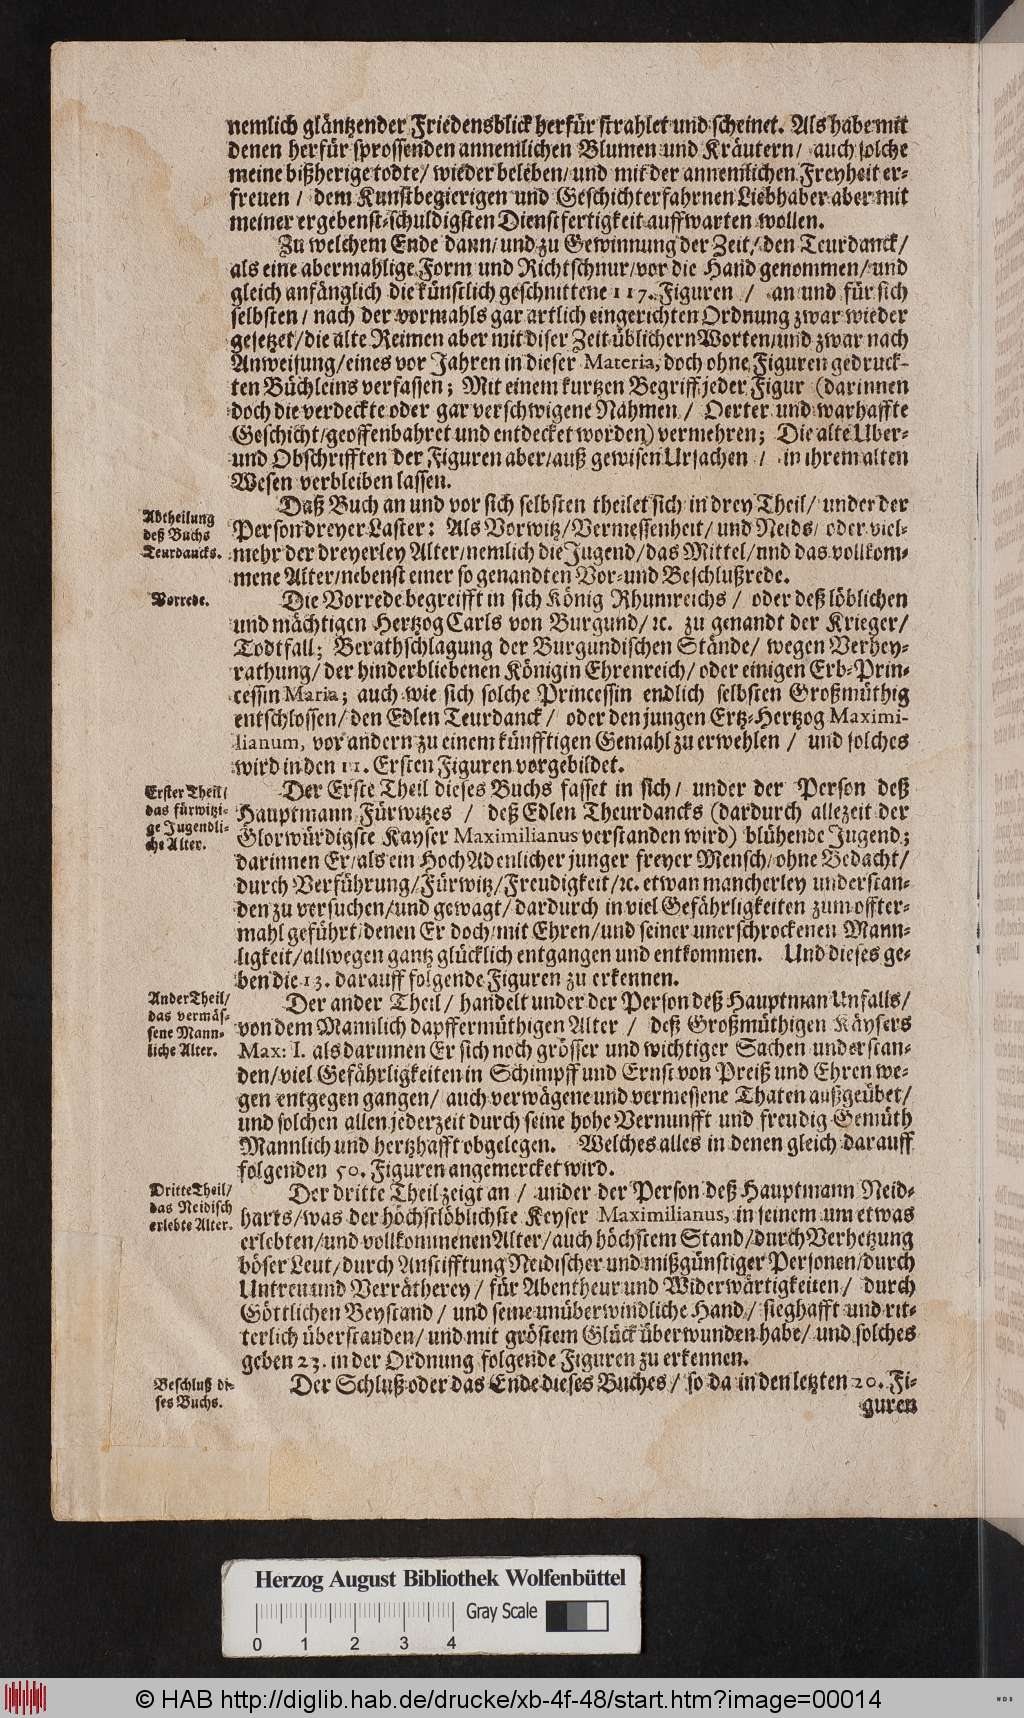 nemlich gläntzender Friedensblick herfür strahlet und scheinet. Als habe mit
denen herfür sprossenden annemlichen Blumen und Kräutern/ auch solche
meine bißherige todte/ wieder beleben/ und mit der annemlichen Freyheit er-
freuen / dem Kunstbegierigen und Geschichterfahrnen Liebhaber aber mit
meiner ergebenst-schuldigsten Dienstfertigkeit auffwarten wollen.
Zu welchem Ende dann/ und zu Gewinnung der Zeit/ den Teurdanck/
als eine abermahlige Form und Richtschnur/ vor die Hand genommen/ und
gleich anfänglich die künstlich geschnittene 117. Figuren / an und für sich
selbsten/ nach der vormahls gar artlich eingerichten Ordnung zwar wieder
gesetzet/ die alte Reimen aber mit diser Zeit üblichern Worten/ und zwar nach
Anweisung/ eines vor Jahren in dieser Materia, doch ohne Figuren gedruck-
ten Büchleins verfassen; Mit einem kurtzen Begriff jeder Figur (darinnen
doch die verdeckte oder gar verschwigene Nahmen / Oerter und warhaffte
Geschicht/ geoffenbahret und entdecket worden) vermehren; Die alte Uber-
und Obschrifften der Figuren aber/ auß gewisen Ursachen / in ihrem alten
Wesen verbleiben lassen.
Abtheilung
deß Buchs
Teurdancks.
Daß Buch an und vor sich selbsten theilet sich in drey Theil/ under der
Person dreyer Laster: Als Vorwitz/ Vermessenheit/ und Neids/ oder viel-
mehr der dreyerley Alter/ nemlich die Jugend/ das Mittel/ und das vollkom-
mene Alter/ nebenst einer so genandten Vor- und Beschlußrede.
Vorrede.
Die Vorrede begreifft in sich König Rhumreichs / oder deß löblichen
und mächtigen Hertzog Carls von Burgund/ ꝛc. zu genandt der Krieger/
Todtfall; Berathschlagung der Burgundischen Stände/ wegen Verhey-
rathung/ der hinderbliebenen Königin Ehrenreich/ oder einigen Erb-Prin-
cessin Maria; auch wie sich solche Princessin endlich selbsten Großmüthig
entschlossen/ den Edlen Teurdanck / oder den jungen Ertz-Hertzog Maximi-
lianum, vor andern zu einem künfftigen Gemahl zu erwehlen / und solches
wird in den 11. Ersten Figuren vorgebildet.
Erster Theil/
das fürwitzi-
ge Jugendli-
che Alter.
Der Erste Theil dieses Buchs fasset in sich/ under der Person deß
Hauptmann Fürwitzes / deß Edlen Theurdancks (dardurch allezeit der
Glorwürdigste Kayser Maximilianus verstanden wird) blühende Jugend;
darinnen Er/ als ein HochAdenlicher junger freyer Mensch/ ohne Bedacht/
durch Verführung/ Fürwitz/ Freudigkeit/ ꝛc. etwan mancherley understan-
den zu versuchen/ und gewagt/ dardurch in viel Gefährligkeiten zum offter-
mahl geführt/ denen Er doch/ mit Ehren/ und seiner unerschrockenen Mann-
ligkeit/ allwegen gantz glücklich entgangen und entkommen. Und dieses ge-
ben die 13. darauff folgende Figuren zu erkennen.
Ander Theil/
das vermäs-
sene Mann-
liche Alter.
Der ander Theil/ handelt under der Person deß Hauptman Unfalls/
von dem Mannlich dapffermüthigen Alter / deß Großmüthigen Käysers
Max: I. als darinnen Er sich noch grösser und wichtiger Sachen understan-
den/ viel Gefährligkeiten in Schimpff und Ernst von Preiß und Ehren we-
gen entgegen gangen/ auch verwägene und vermessene Thaten außgeübet/
und solchen allen jederzeit durch seine hohe Vernunfft und freudig Gemüth
Mannlich und hertzhafft obgelegen. Welches alles in denen gleich darauff
folgenden 50. Figuren angemercket wird.
Dritte Theil/
das Neidisch
erlebte Alter.
Der dritte Theil zeigt an / under der Person deß Hauptmann Neid-
harts/ was der höchstlöblichste Keyser Maximilianus, in seinem um etwas
erlebten/ und vollkommenen Alter/ auch höchstem Stand/ durch Verhetzung
böser Leut/ durch Anstifftung Neidischer und mißgünstiger Personen/ durch
Untreu und Verrätherey / für Abentheur und Widerwärtigkeiten / durch
Göttlichen Beystand / und seine unüberwindliche Hand / sieghafft und rit-
terlich überstanden/ und mit gröstem Glück überwunden habe/ und solches
geben 23. in der Ordnung folgende Figuren zu erkennen.
Beschluß di-
ses Buchs.
Der Schluß oder das Ende dieses Buches / so da in den letzten 20. Fi-
guren
Herzog August Bibliothek Wolfenbüttel
Gray Scale
0 1 2 3 4
© HAB http://diglib.hab.de/drucke/xb-4f-48/start.htm?image=00014